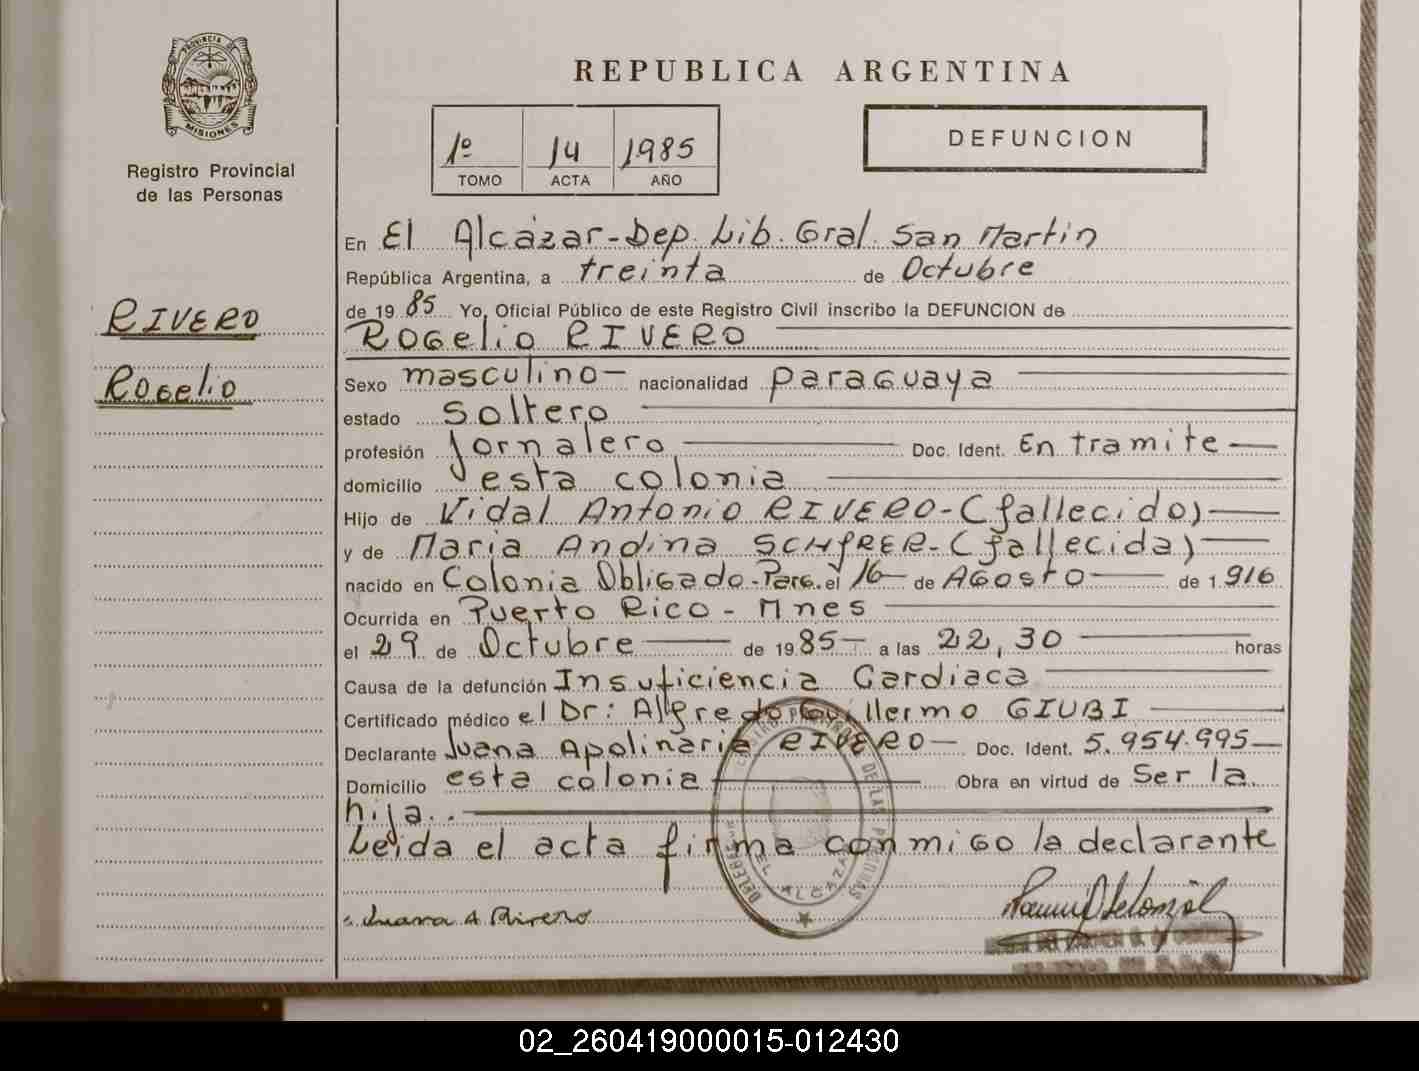 PROVINCIA DE
MISIONES
Registro Provincial
de las Personas
RIVERO
Rogelio
REPUBLICA ARGENTINA
1º 14 1985
TOMO ACTA AÑO
DEFUNCION
En El Alcázar-Dep. Lib. Gral. San Martin
República Argentina, a treinta de Octubre
de 19 85 Yo, Oficial Público de este Registro Civil inscribo la DEFUNCION de
Rogelio RIVERO
Sexo masculino- nacionalidad paraguaya
estado soltero
profesión Jornalero Doc. Ident. En tramite
domicilio esta colonia
Hijo de Vidal Antonio RIVERO-(fallecido)
y de Maria Andina (fallecida)
nacido en Colonia Obligado-Parg. el 16 de Agosto de 1.916
Ocurrida en Puerto Rico - Mnes
el 29 de Octubre de 1985 a las 22,30 horas
Causa de la defunción Insuficiencia Cardiaca
Certificado médico el Dr: Alfredo Guillermo GIUBI
Declarante Juana Apolinaria RIVERO- Doc. Ident. 5.954.995
Domicilio esta colonia Obra en virtud de Ser la
hija..
Leida el acta firma conmigo la declarante
Juana A Rivero
DE LAS PERSONAS
EL ALCAZAR
02_260419000015-012430